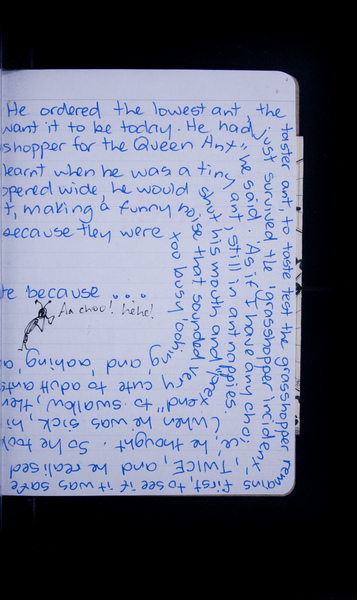 He ordered the lowest ant, the
taster ant, to taste test the grasshopper remains
first, to see if it was safe
want it to be today. He had
just survived the 'grasshopper incident'
TWICE, and he realised
shopper for the Queen Ant"
he said. 'As if I have any choice,'
he thought. So he took
learnt when he was a tiny
ant, still in ant nappies
(When he was sick, hi
opened wide, he would
shut his mouth and "prex
xend" to swallow, then
t, making a funny noise that sounded very
cute to adult ants
because they were
too busy 'oohing'
and 'aahing' a
te because ...
Aa choo! hehe!